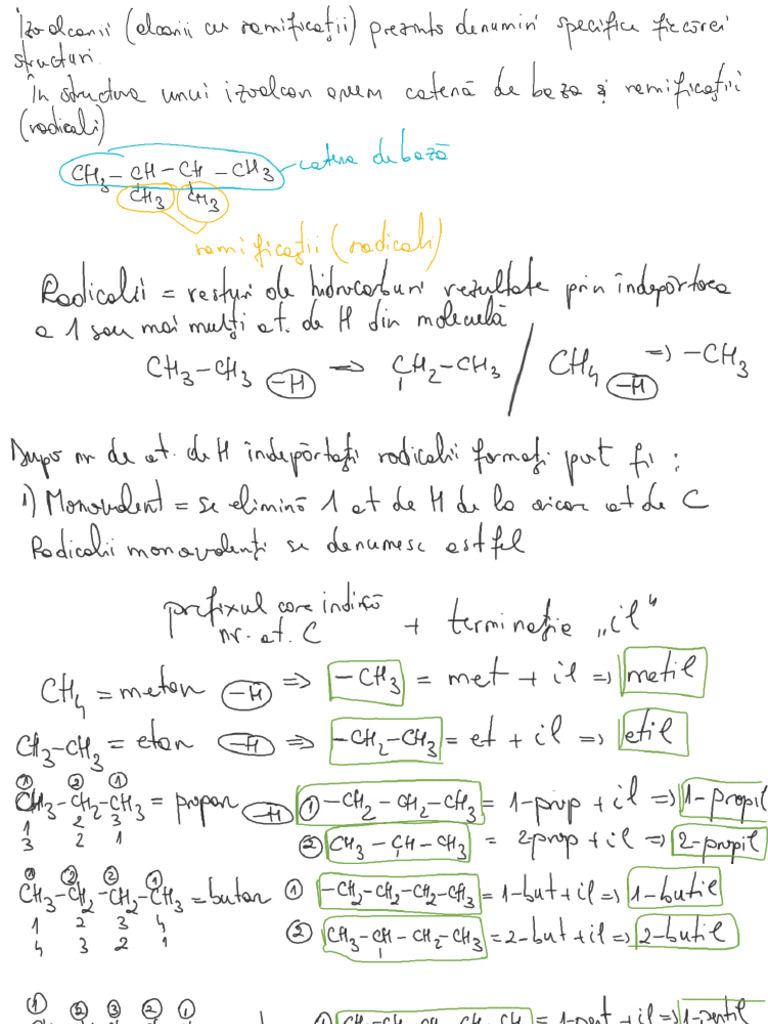 Izoalcanii (alcanii cu ramificații) prezintă denumiri specifice fiecărei
structuri.
În structura unui izoalcan avem catenă de bază și ramificații
(radicali)
CH3 – CH – CH – CH3 – catena de bază
CH3 CH3
ramificații (radicali)
Radicalii = resturi de hidrocarburi rezultate prin îndepărtarea
a 1 sau mai mulți at. de H din moleculă
CH3–CH3 –H => CH2–CH3 / CH4 –H => –CH3
După nr de at. de H îndepărtați radicalii formați pot fi :
1) Monovalent = se elimină 1 at de H de la oricare at de C
Radicalii monovalenți se denumesc astfel
prefixul care indică + terminație „il"
nr. at. C
CH4 = metan –H => –CH3 = met + il => metil
CH3–CH3 = etan –H => –CH2–CH3 = et + il => etil
① ② ①
CH3–CH2–CH3 = propan –H ① –CH2 – CH2 – CH3 = 1-prop + il => 1-propil
1 2 3
3 2 1 ② CH3 – CH – CH3 = 2-prop + il => 2-propil
① ② ② ①
CH3–CH2–CH2–CH3 = butan ① –CH2–CH2–CH2–CH3 = 1-but + il => 1-butil
1 2 3 4
4 3 2 1 ② CH3–CH – CH2–CH3 = 2-but + il => 2-butil
① ② ③ ② ①
= 1-pent + il => 1-pentil